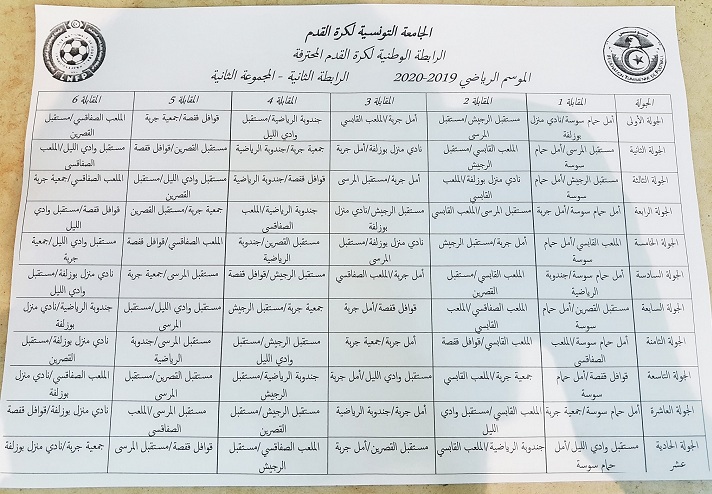 الجامعة التونسية لكرة القدم
الرابطة الوطنية لكرة القدم المحترفة
الموسم الرياضي 2019-2020 الرابطة الثانية - المجموعة الثانية
الجولة المقابلة 1 المقابلة 2 المقابلة 3 المقابلة 4 المقابلة 5 المقابلة 6
الجولة الأولى أمل حمام سوسة/نادي منزل بوزلفة مستقبل الرجيش/مستقبل المرسى أمل جربة/الملعب القابسي جندوبة الرياضية/مستقبل وادي الليل قوافل قفصة/جمعية جربة الملعب الصفاقسي/مستقبل القصرين
الجولة الثانية مستقبل المرسى/أمل حمام سوسة الملعب القابسي/مستقبل الرجيش نادي منزل بوزلفة/أمل جربة جمعية جربة/جندوبة الرياضية مستقبل القصرين/قوافل قفصة مستقبل وادي الليل/الملعب الصفاقسي
الجولة الثالثة مستقبل الرجيش/أمل حمام سوسة نادي منزل بوزلفة/الملعب القابسي أمل جربة/مستقبل المرسى قوافل قفصة/جندوبة الرياضية مستقبل وادي الليل/مستقبل القصرين الملعب الصفاقسي/جمعية جربة
الجولة الرابعة أمل حمام سوسة/أمل جربة مستقبل المرسى/الملعب القابسي مستقبل الرجيش/نادي منزل بوزلفة جندوبة الرياضية/الملعب الصفاقسي جمعية جربة/مستقبل القصرين قوافل قفصة/مستقبل وادي الليل
الجولة الخامسة الملعب القابسي/أمل حمام سوسة أمل جربة/مستقبل الرجيش نادي منزل بوزلفة/مستقبل المرسى مستقبل القصرين/جندوبة الرياضية الملعب الصفاقسي/قوافل قفصة مستقبل وادي الليل/جمعية جربة
الجولة السادسة أمل حمام سوسة/جندوبة الرياضية الملعب القابسي/مستقبل القصرين أمل جربة/الملعب الصفاقسي مستقبل الرجيش/قوافل قفصة مستقبل المرسى/جمعية جربة نادي منزل بوزلفة/مستقبل وادي الليل
الجولة السابعة مستقبل القصرين/أمل حمام سوسة الملعب الصفاقسي/الملعب القابسي قوافل قفصة/أمل جربة جمعية جربة/مستقبل الرجيش مستقبل وادي الليل/مستقبل المرسى جندوبة الرياضية/نادي منزل بوزلفة
الجولة الثامنة أمل حمام سوسة/الملعب الصفاقسي الملعب القابسي/قوافل قفصة أمل جربة/جمعية جربة مستقبل الرجيش/مستقبل وادي الليل مستقبل المرسى/جندوبة الرياضية نادي منزل بوزلفة/مستقبل القصرين
الجولة التاسعة قوافل قفصة/أمل حمام سوسة جمعية جربة/الملعب القابسي مستقبل وادي الليل/أمل جربة جندوبة الرياضية/مستقبل الرجيش مستقبل القصرين/مستقبل المرسى الملعب الصفاقسي/نادي منزل بوزلفة
الجولة العاشرة أمل حمام سوسة/جمعية جربة الملعب القابسي/مستقبل وادي الليل أمل جربة/جندوبة الرياضية مستقبل الرجيش/مستقبل القصرين مستقبل المرسى/الملعب الصفاقسي نادي منزل بوزلفة/قوافل قفصة
الجولة الحادية عشر مستقبل وادي الليل/أمل حمام سوسة جندوبة الرياضية/الملعب القابسي مستقبل القصرين/أمل جربة الملعب الصفاقسي/مستقبل الرجيش قوافل قفصة/مستقبل المرسى جمعية جربة/نادي منزل بوزلفة